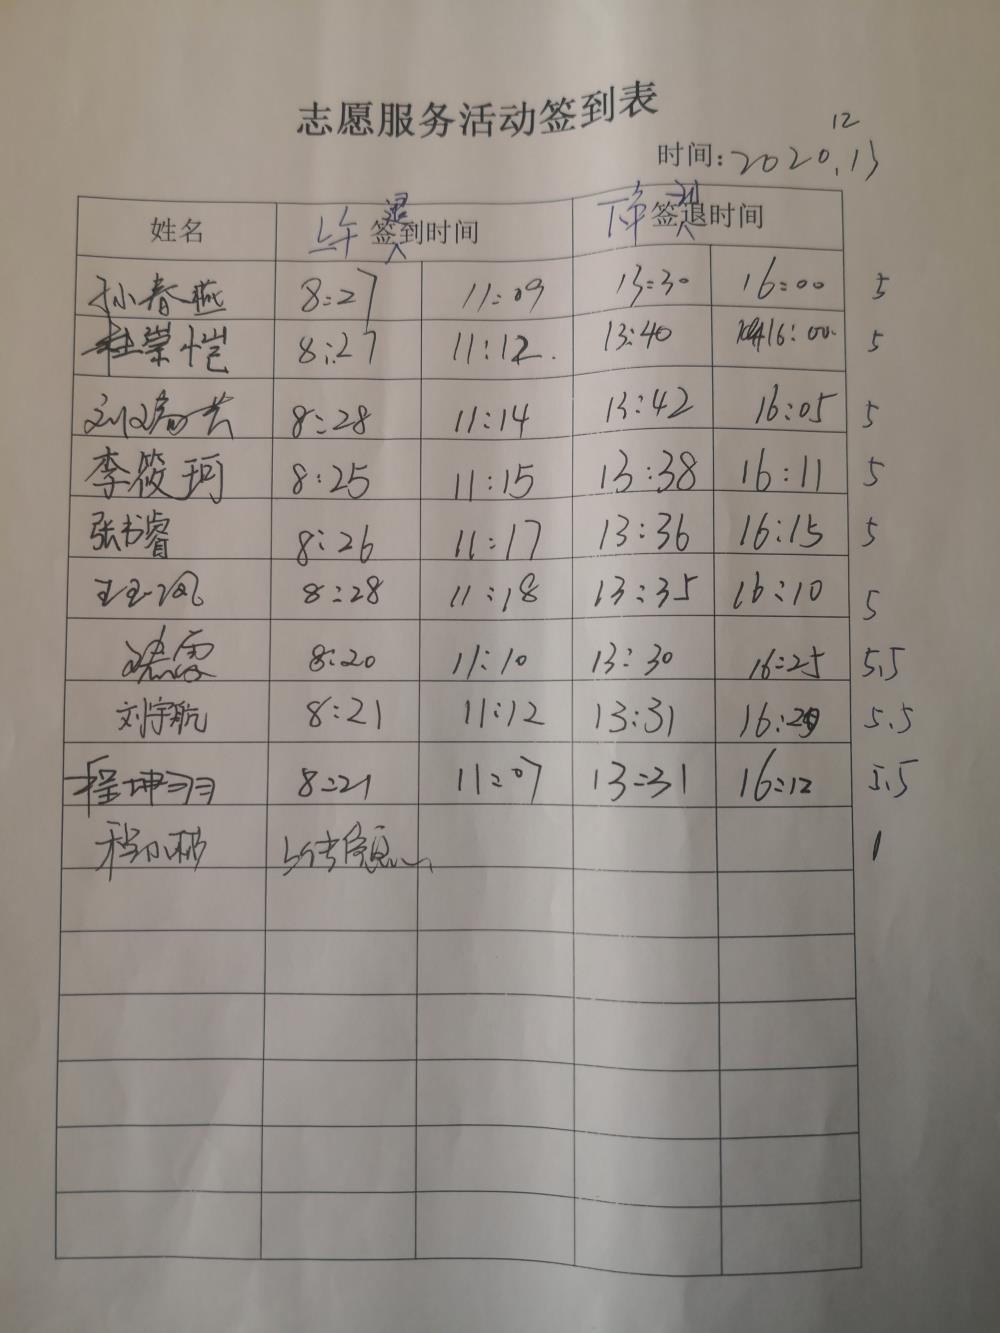 志愿服务活动签到表
12
时间：2020.13
姓名 上午 签到时间 退 下午 签退时间 到
孙春燕 8:27 11:09 13:30 16:00 5
杜崇恺 8:27 11:12. 13:40 16:00. 5
刘 8:28 11:14 13:42 16:05 5
李筱珂 8:25 11:15 13:38 16:11 5
张书睿 8:26 11:17 13:36 16:15 5
8:28 11:18 13:35 16:10 5
8:20 11:10 13:30 16:25 5.5
刘宇航 8:21 11:12 13:31 5.5
程坤羽 8:21 11:07 13:31 16:12 5.5
程 1